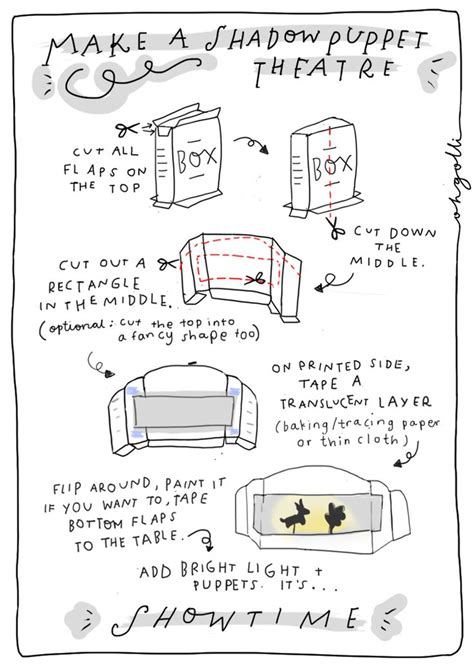 MAKE A SHADOW PUPPET
THEATRE
CUT ALL
FLAPS ON
THE TOP
BOX
BOX
ohgolli
CUT DOWN
THE
MIDDLE.
CUT OUT A
RECTANGLE
IN THE MIDDLE.
(optional: cut the top into
a fancy shape too)
ON PRINTED SIDE,
TAPE A
TRANSLUCENT LAYER
(baking/tracing paper
or thin cloth)
FLIP AROUND, PAINT IT
IF YOU WANT TO, TAPE
BOTTOM FLAPS
TO THE TABLE.
ADD BRIGHT LIGHT +
PUPPETS. IT'S...
SHOWTIME